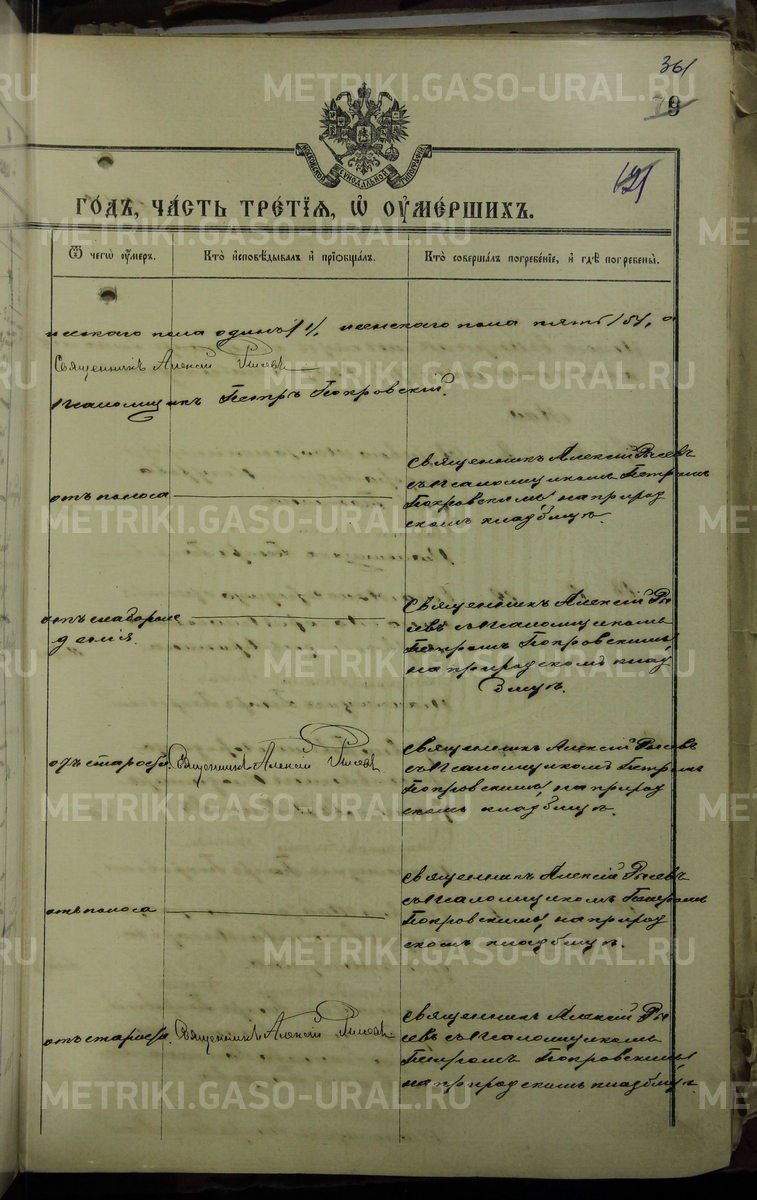 361
79
121
ГОДЪ, ЧА́СТЬ ТРЕ́ТЇѦ, Ѡ҆ ОУ҆МЕ́РШИХЪ.
Ѿ чегѡ̀ оу҆́меръ.
Кто̀ и҆сповѣ́дывалъ и҆ прїѡбща́лъ.
Кто̀ соверша́лъ погребе́нїе, и҆ гдѣ̀ погребены̀.
пола одинъ /1/, женскаго пола пять /5/, а
Священникъ Алексій
Псаломщикъ Петръ Покровскій.
отъ поноса
Священникъ Алексій Рысевъ
съ псаломщикомъ Петромъ
Покровскимъ, на приход
скомъ кладбищѣ.
отъ слаборож
денія.
Священникъ Алексій Ры
севъ съ псаломщикомъ
Петромъ Покровскимъ,
на приходскомъ клад
бищѣ.
отъ старости.
Священникъ Алексій
Священникъ Алексій Рысевъ
съ псаломщикомъ Петромъ
Покровскимъ, на приход
скомъ кладбищѣ.
отъ поноса
Священникъ Алексій Рысевъ
съ псаломщикомъ Петромъ
Покровскимъ, на приход
скомъ кладбищѣ.
отъ старости.
Священникъ Алексій
Священникъ Алексій Ры
севъ съ псаломщикомъ
Петромъ Покровскимъ,
на приходскомъ кладбищѣ.
METRIKI.GASO-URAL.RU